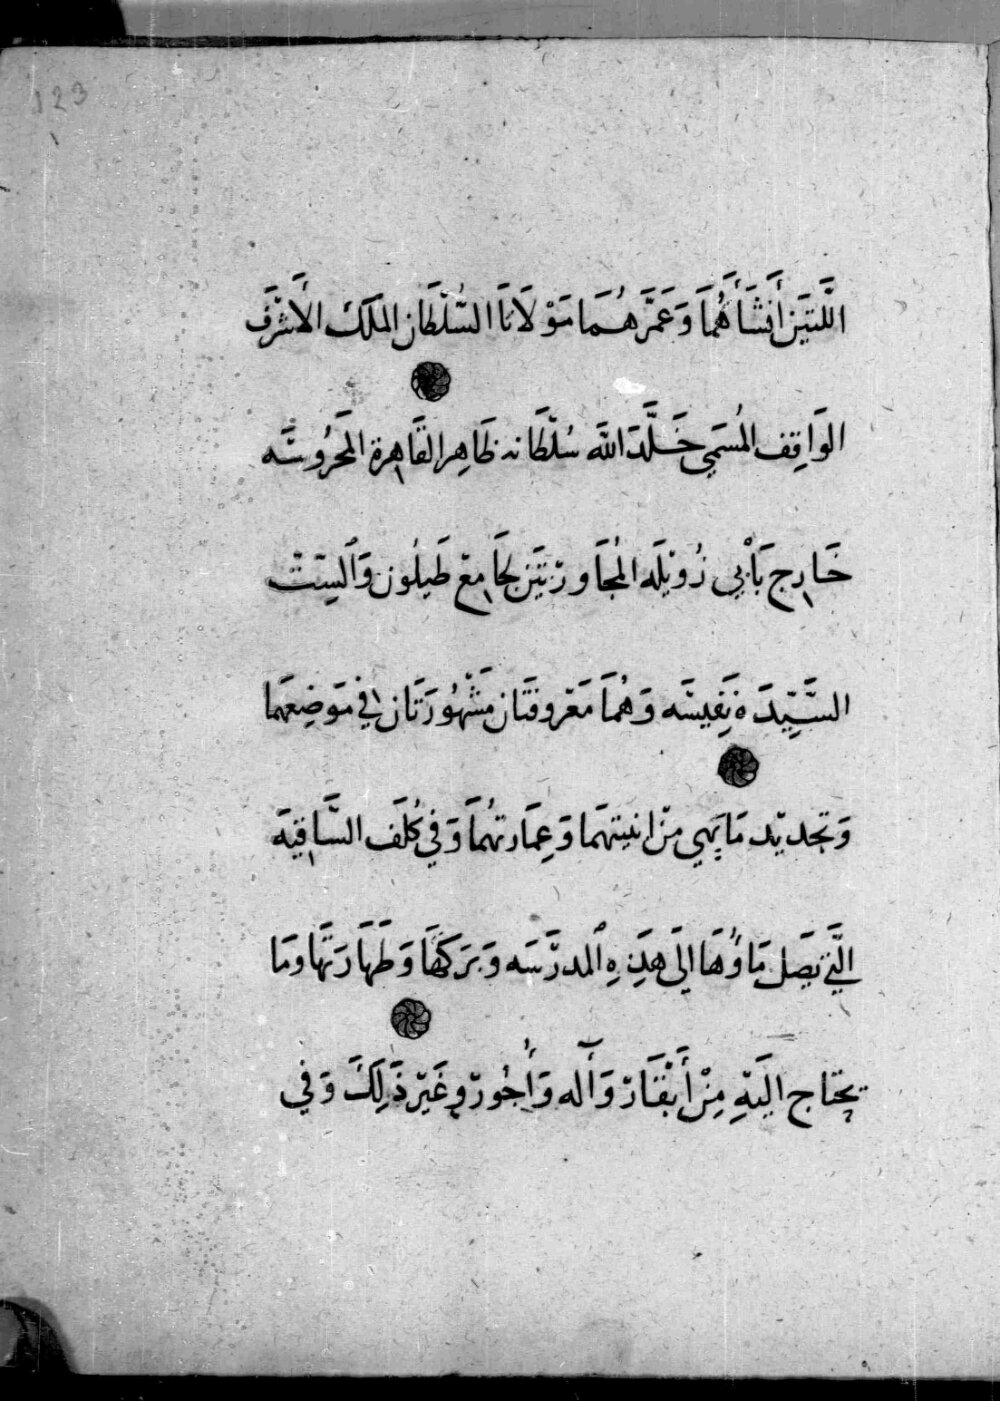 123
اللتَين أَنشَأَهُمَا وَعَمَّرَهُمَا مَوْلَانَا السُّلْطَان الملك الأَشْرَف
الوَاقِف المُسَمى خَلَّدَ اللَّه سُلْطَانه ظَاهِر القَاهِرة المَحْرُوسَه
خَارج بَابي زُوَيْلَه المُجَاورْتَيَن لجَامِعْ طَيلُون وَالسِتّ
السَّيِّدَه نَفِيسَه وَهُمَا مَعْرُوفتَان مَشْهُورَتَان في مَوضِعهمَا
وَتجديْد مَا يَهي منْ ابنيتهمَا وَعِمَارتهُمَا وَفي كُلَف السَّاقيَة
الَّتي يصَل مَاؤُهَا اليَ هَذِهِ المدرَسَه وَبَركتهَا وَطهَارَتهَا ومَا
يحتَاج اليَهِ مِنْ أَبْقَارْ وَآله وَأُجُورْ وغَيْر ذَلِكَ وَفي